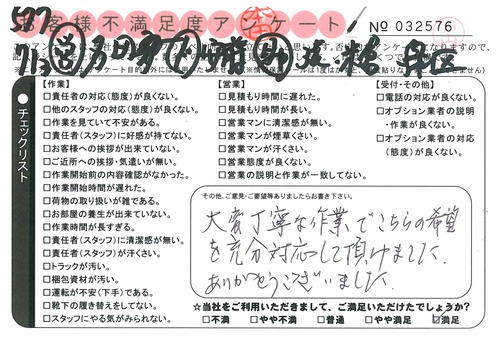 お客様不満足度アンケート
No 032576
チェックリスト
【作業】
□責任者の対応(態度)が良くない。
□他のスタッフの対応(態度)が良くない。
□作業を見ていて不安がある。
□責任者(スタッフ)に好感が持てない。
□お客様への挨拶が出来ていない。
□ご近所への挨拶・気遣いが無い。
□作業開始前の内容確認がなかった。
□作業開始時間が遅れた。
□荷物の取り扱いが雑である。
□お部屋の養生が出来ていない。
□作業時間が長すぎる。
□責任者(スタッフ)に清潔感が無い。
□責任者(スタッフ)が汗くさい。
□トラックが汚い。
□梱包資材が汚い。
□運転が不安(下手)である。
□靴下の履き替えをしてない。
□スタッフにやる気がみられない。
【営業】
□見積もり時間に遅れた。
□見積もり時間が長い。
□営業マンに清潔感が無い。
□営業マンが煙草くさい。
□営業マンが汗くさい。
□営業態度が良くない。
□営業の説明と作業が一致してない。
【受付・その他】
□電話の対応が良くない。
□オプション業者の説明
・作業が良くない。
□オプション業者の対応
(態度)が良くない。
その他、ご意見・ご要望等ありましたらお書き下さい。
大変丁寧な作業でこちらの希望
を充分対応して頂けました。
ありがとうございました。
☆当社をご利用いただきまして、ご満足いただけたでしょうか?
□不満 □やや不満 □普通 □やや満足 ☑満足